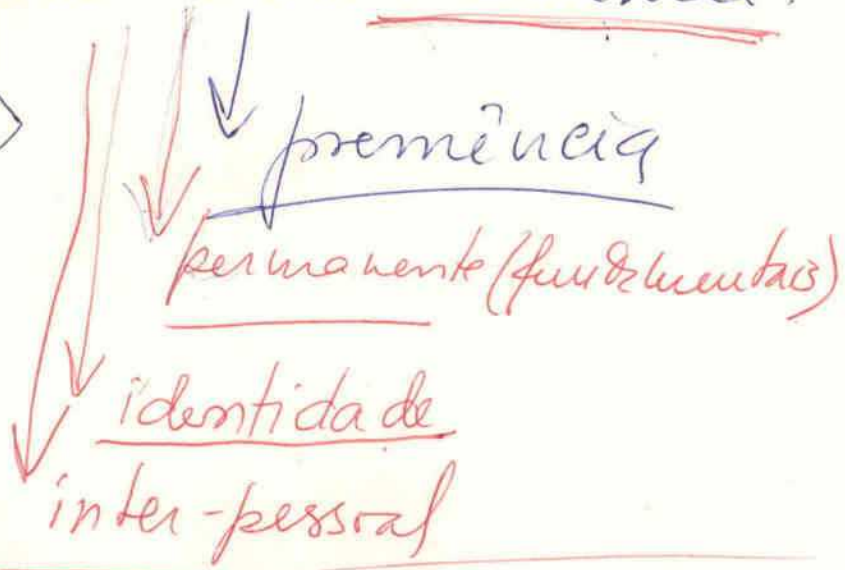 premência
permanente (fundamentais)
identidade
inter-pessoal